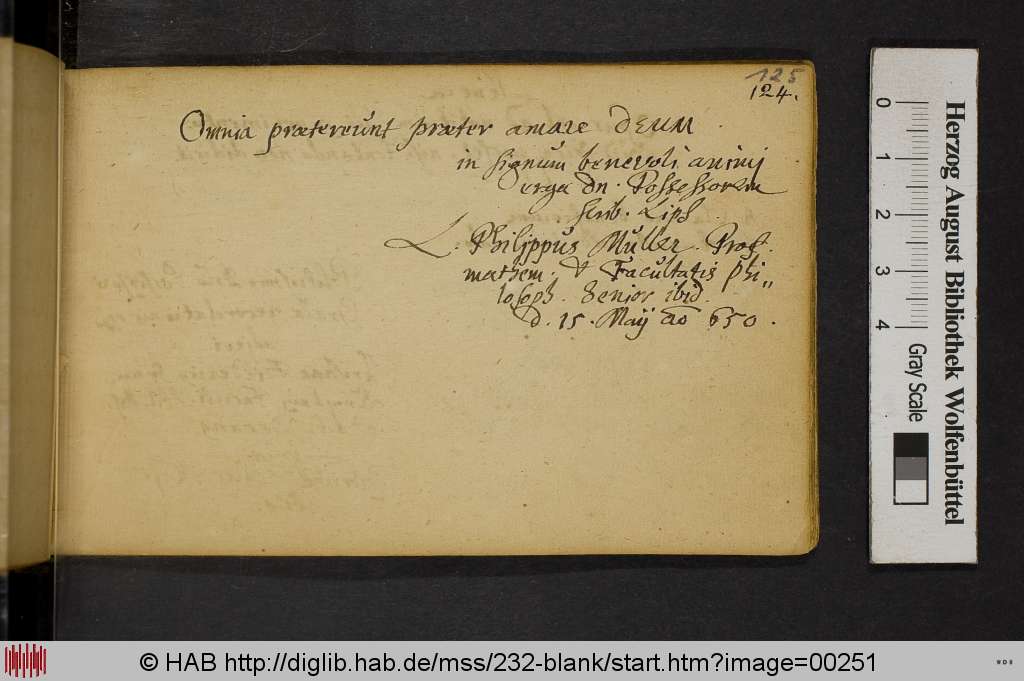 125
124.
Omnia prætereunt præter amare DEUM
in signum benevoli animj
erga dn. Possessorem
scrib. Lips.
L. Philippus Müller. Prof.
mathem. & Facultatis phi„
losoph. Senior ibid.
d. 15. Maij ao 650.
0
1
2
3
4
Gray Scale
Herzog August Bibliothek Wolfenbüttel
© HAB http://diglib.hab.de/mss/232-blank/start.htm?image=00251